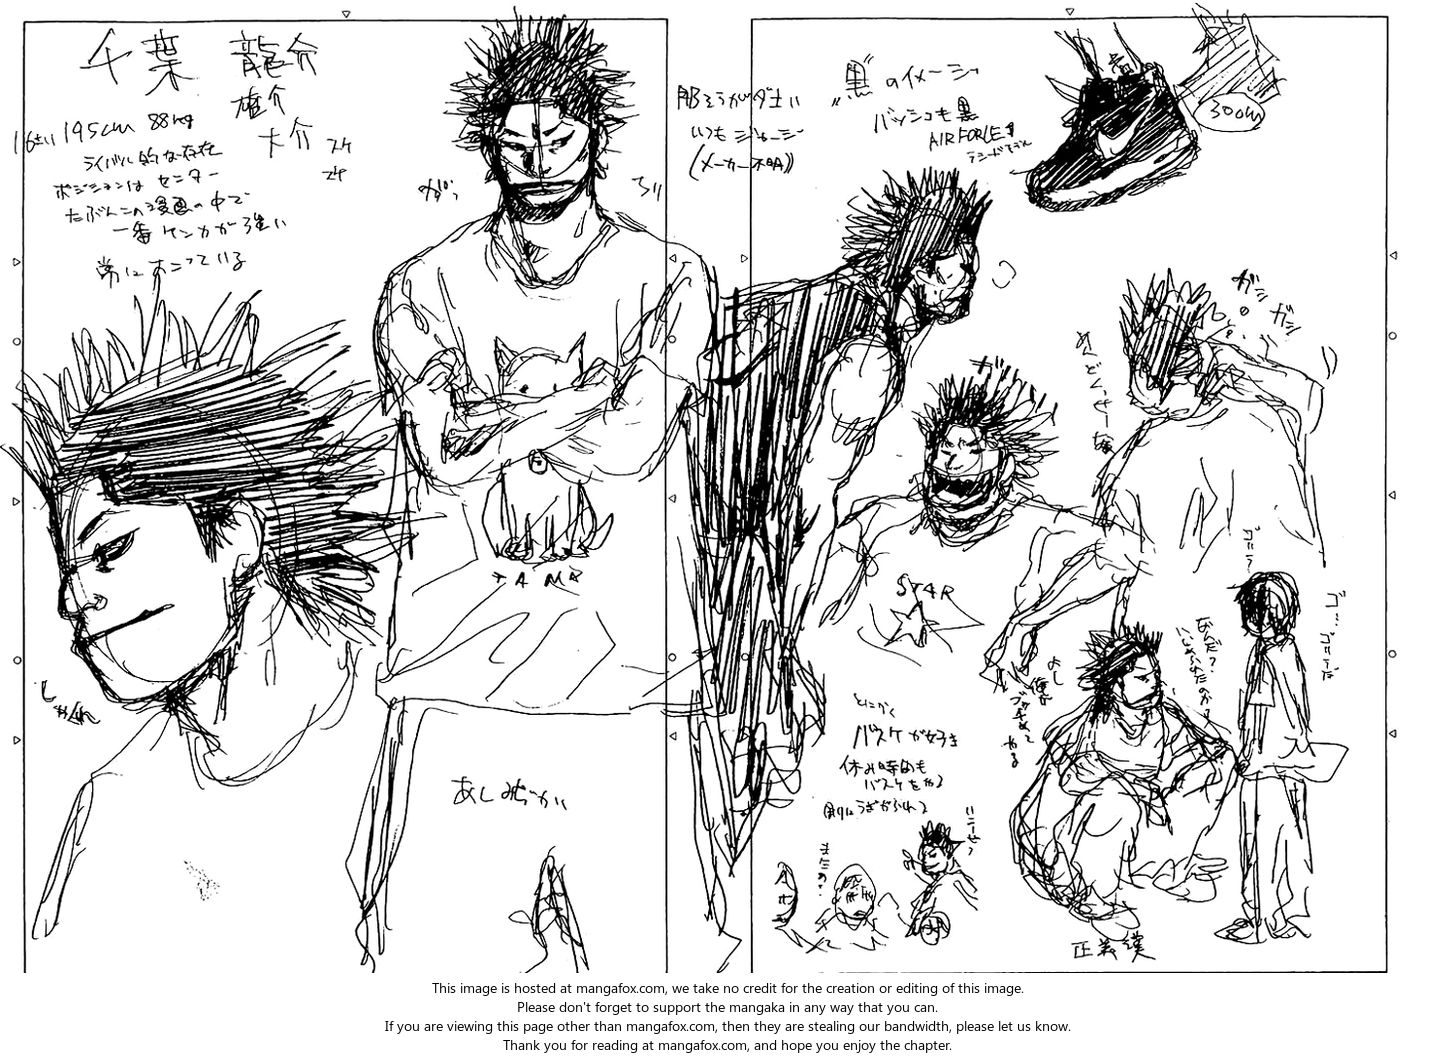 千葉 龍介
雄介
大介
16才 195cm 88kg
ライバル的な存在
ポジションは センター
たぶんこの漫画の中で
一番ケンカが強い
常におこっている
TAMA
あしみじかい
服そうがダサい
いつも ジャージ
(メーカー不明)
"黒"のイメージ
バッシュも黒
AIR FORCE 1
30cm
ガシ
ガシ
めんどくせー
STAR
よし
俺が
とにかく
バスケが好き
休み時間も
バスケをやる
なんだ?
いじめられたのか?
正義漢
This image is hosted at mangafox.com, we take no credit for the creation or editing of this image.
Please don't forget to support the mangaka in any way that you can.
If you are viewing this page other than mangafox.com, then they are stealing our bandwidth, please let us know.
Thank you for reading at mangafox.com, and hope you enjoy the chapter.